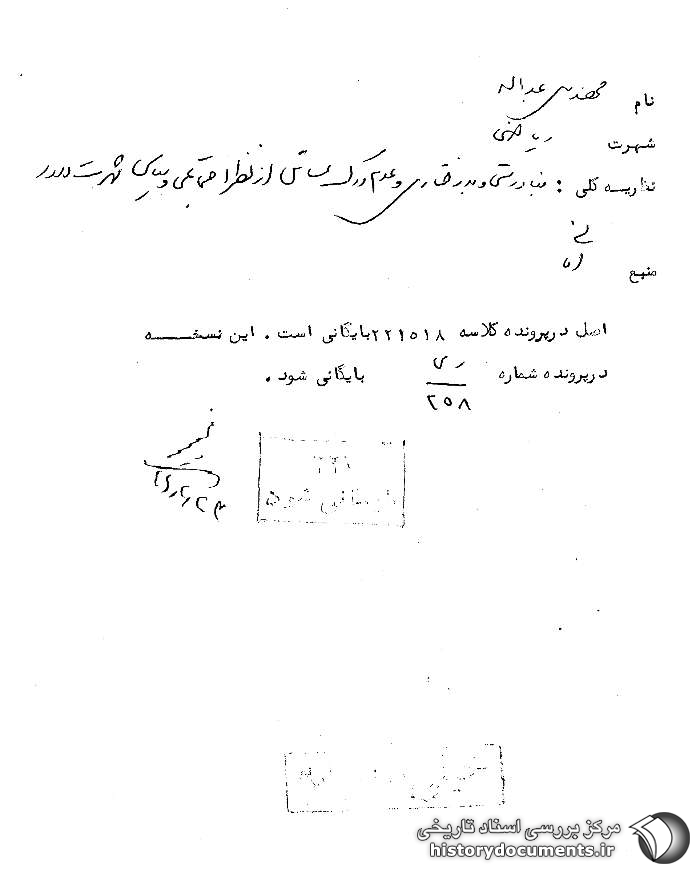 نام مهندس عبداله
شهرت ریاضی
نظریه کلی : نادرستی و بدرفتاری و عدم درک سیاسی از نظر اجتماعی و سیاسی شهرت دارد
منبع
اصل در پرونده کلاسه ۲۲۱۵۱۸ بایگانی است . این نسخه
در پرونده شماره ر ی بایگانی شود .
۲۵۸
۲۲۱
بایگانی شود
مرکز بررسی اسناد تاریخی
historydocuments.ir